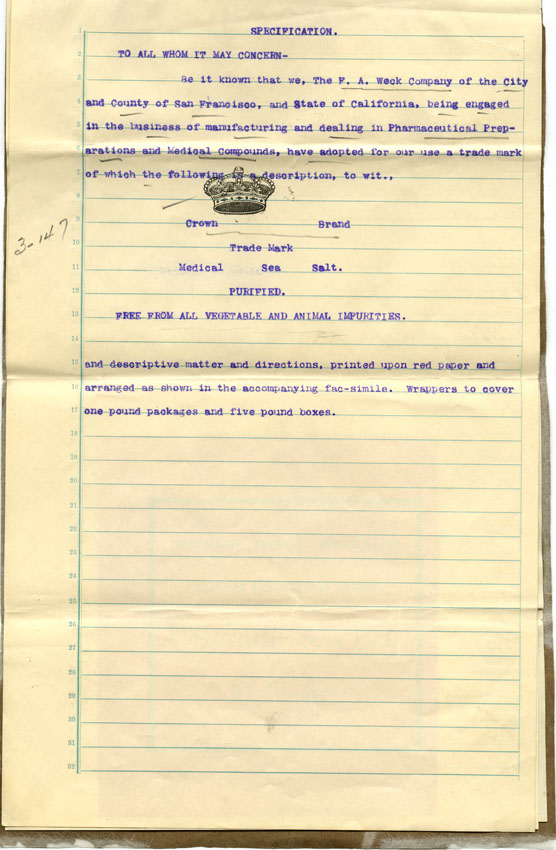 SPECIFICATION.
TO ALL WHOM IT MAY CONCERN-
Be it known that we, The F. A. Weck Company of the City
and County of San Francisco, and State of California, being engaged
in the business of manufacturing and dealing in Pharmaceutical Prep-
arations and Medical Compounds, have adopted for our use a trade mark
of which the following is a description, to wit.,
Crown Brand
3-147
Trade Mark
Medical Sea Salt.
PURIFIED.
FREE FROM ALL VEGETABLE AND ANIMAL IMPURITIES.
and descriptive matter and directions, printed upon red paper and
arranged as shown in the accompanying fac-simile. Wrappers to cover
one pound packages and five pound boxes.
1
2
3
4
5
6
7
8
9
10
11
12
13
14
15
16
17
18
19
20
21
22
23
24
25
26
27
28
29
30
31
32